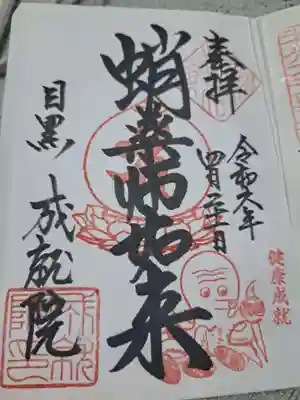 奉拝
令和六年
四月二十一日
健康成就
蛸薬師如来
目黒 成就院